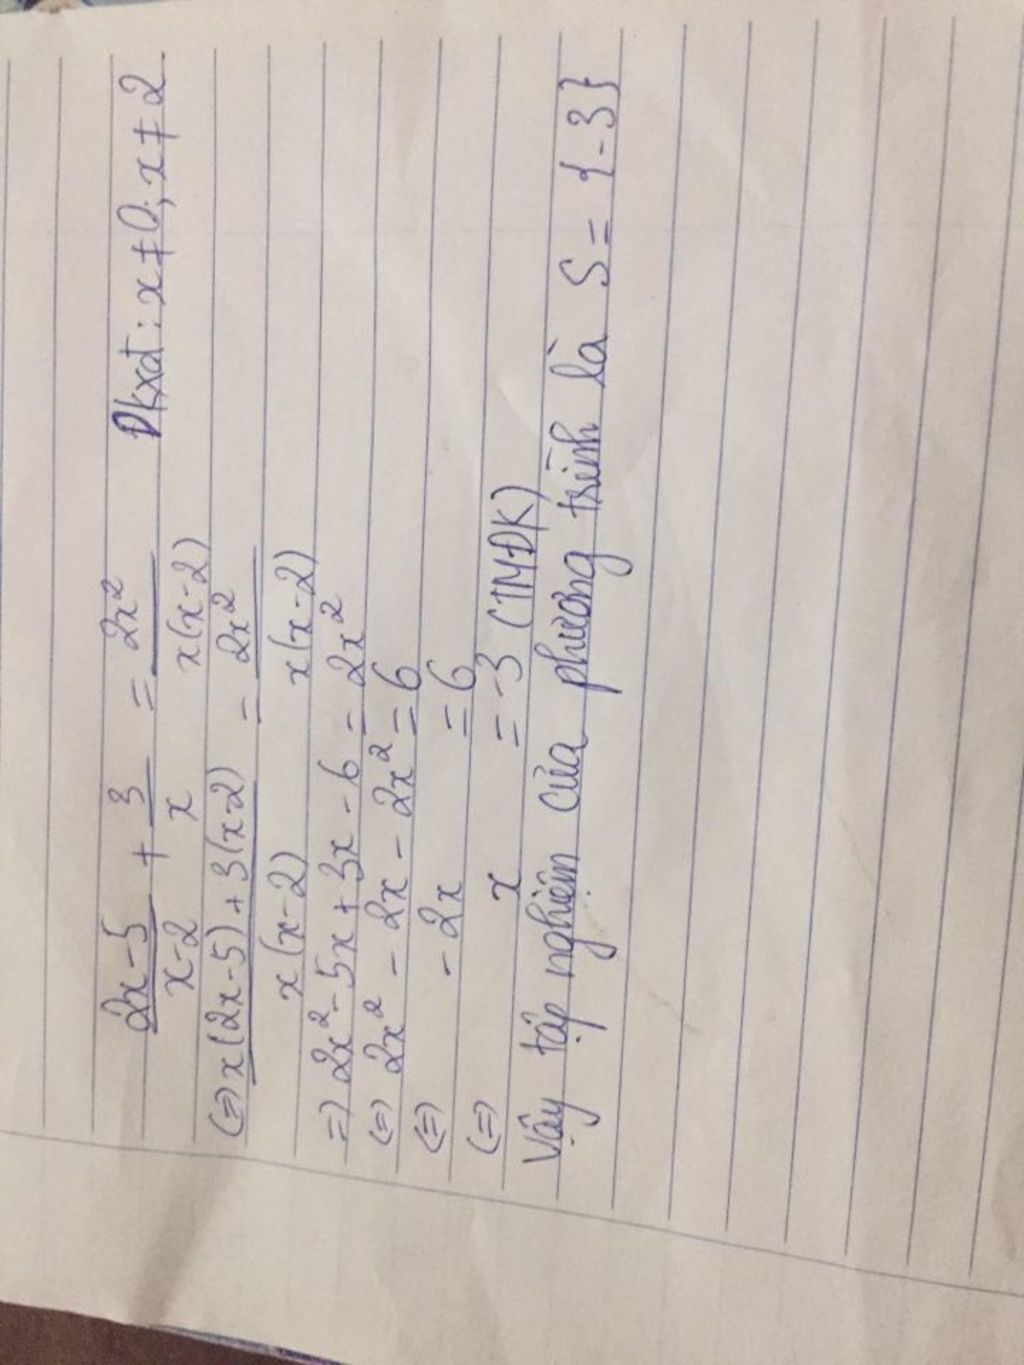 2x-5/x-2 + 3/x = 2x²/x(x-2) Đkxđ: x ≠ 0; x ≠ 2
(=) x(2x-5)+3(x-2)/x(x-2) = 2x²/x(x-2)
=) 2x² - 5x + 3x - 6 = 2x²
(=) 2x² - 2x - 2x² = 6
(=) -2x = 6
(=) x = -3 (TMĐK)
Vậy tập nghiệm của phương trình là S = {-3}